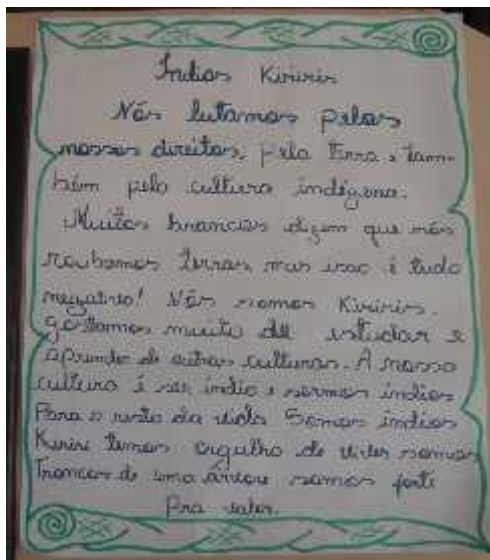 Índios Kiriris
Nós lutamos pelos
nossos direitos, pela Terra e tam-
bém pelo cultura indígena.
Muitos brancos dizem que nós
roubamos terras, mas isso é tudo
negativo! Nós somos Kiriris.
gostamos muito de estudar e
aprender de outras culturas. A nossa
cultura é ser índio e sermos índios
Para o resto da vida Somos índios
Kiriri temos orgulho de viver somos
Troncos de uma árvore somos forte
Pra valer.